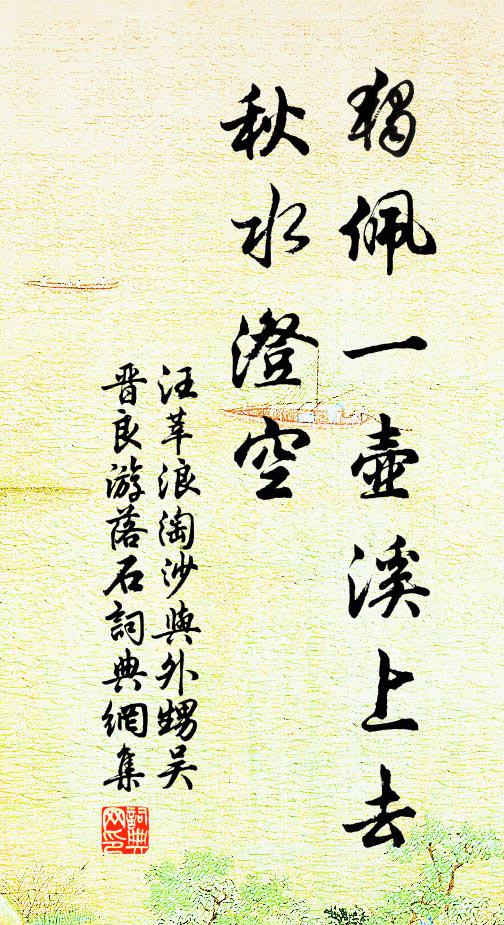 獨佩一壺溪上去
秋水澄空
汪莘浪淘沙與外甥吳
晋良游落石詞典網集
詞典網印